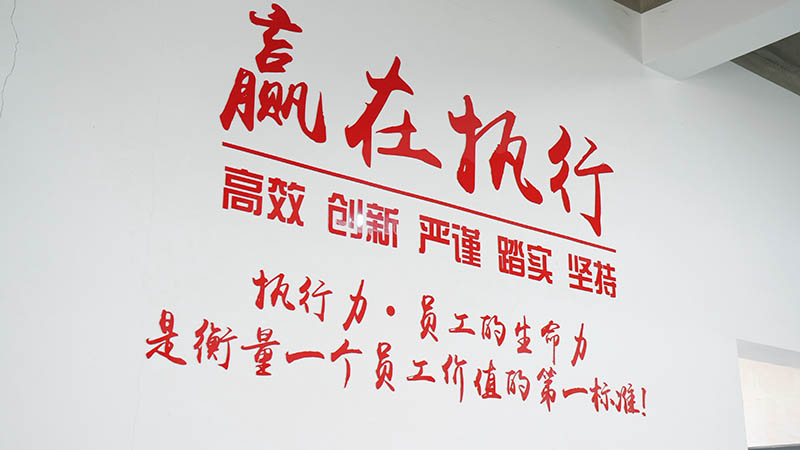 赢在执行
高效 创新 严谨 踏实 坚持
执行力·员工的生命力
是衡量一个员工价值的第一标准!